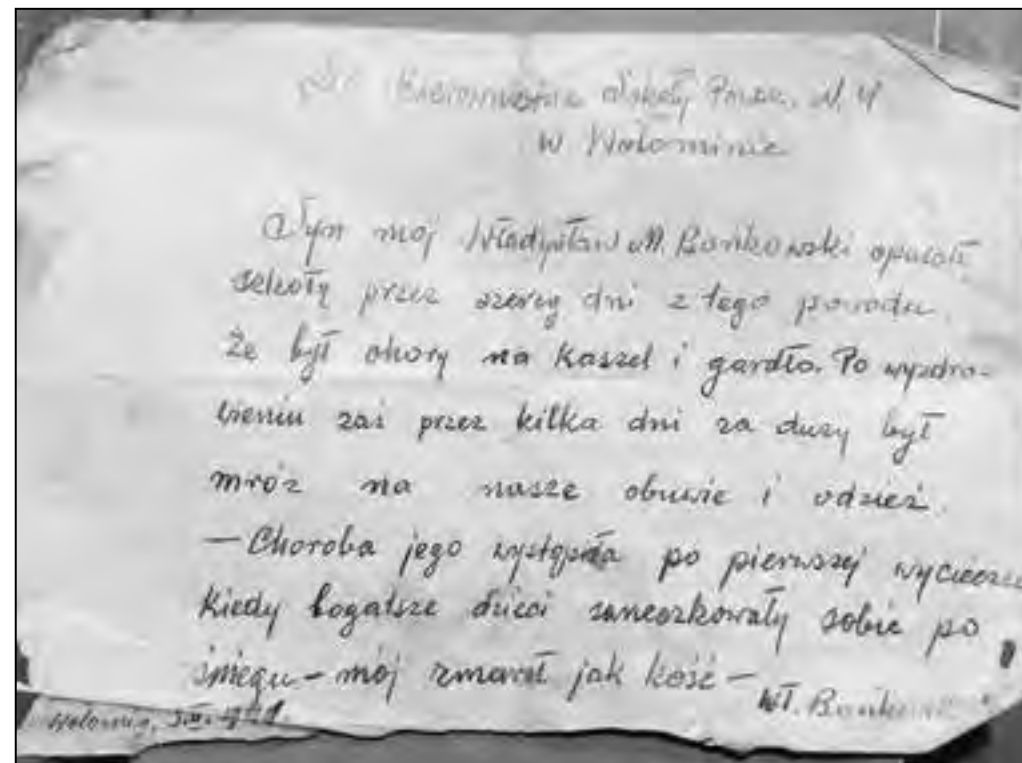 Kierownictwa Szkoły Pow. N. 4
w Wołominie
Syn mój Władysław M. Bańkowski opuścił
szkołę przez szereg dni z tego powodu,
że był chory na kaszel i gardło. Po wyzdro-
wieniu zaś przez kilka dni za duży był
mróz na nasze obuwie i odzież.
— Choroba jego wystąpiła po pierwszej wycieczce
kiedy bogatsze dzieci saneczkowały sobie po
śniegu — mój zmarzł jak kość —
Wł. Bańkowski
Wołomin,